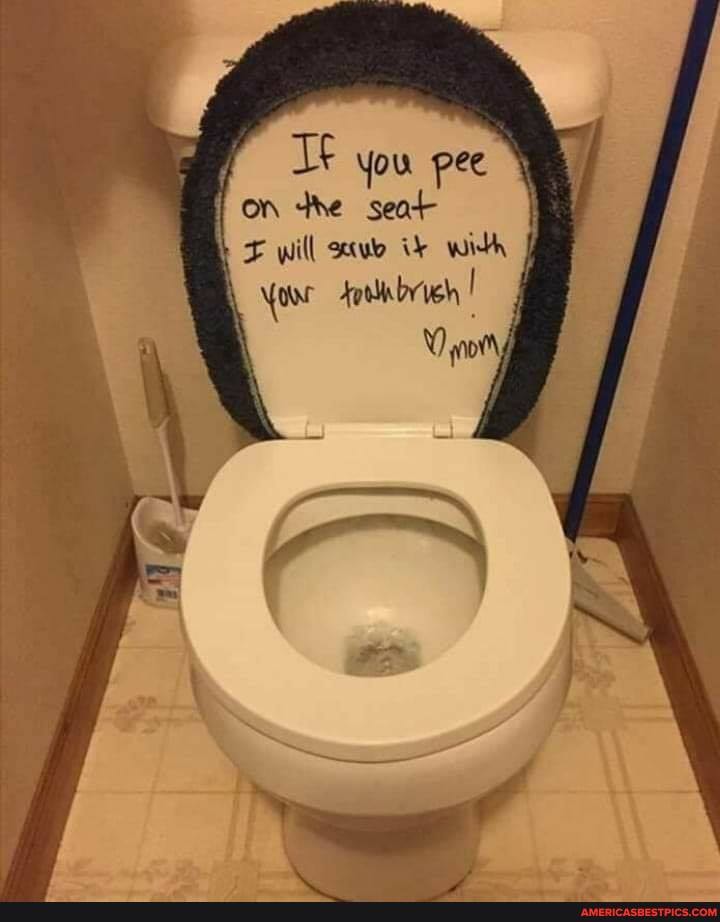 If you pee
on the seat
I will scrub it with
your toothbrush!
♡mom
AMERICASBESTPICS.COM